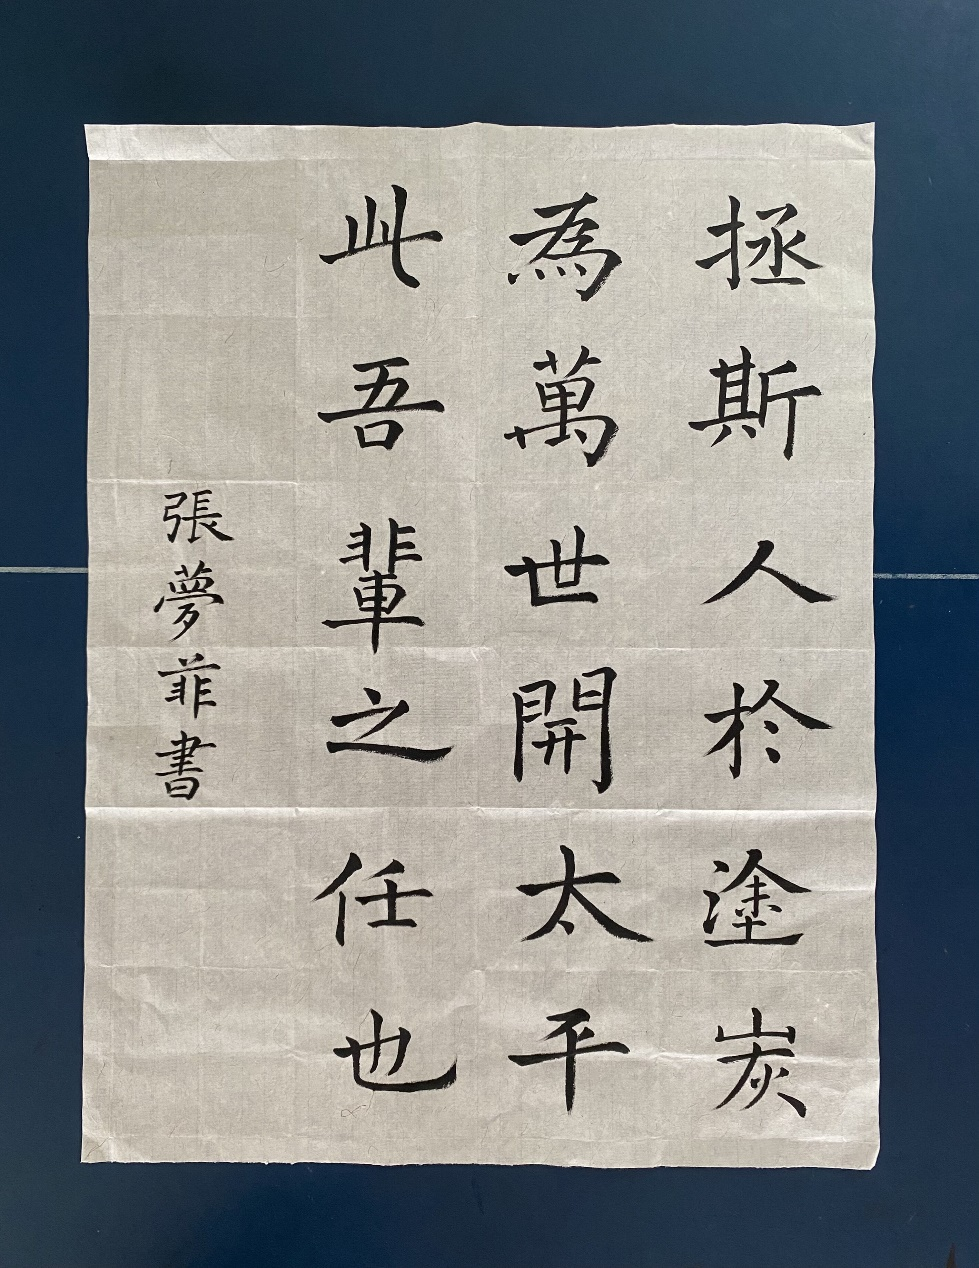 拯斯人於塗炭
為萬世開太平
此吾輩之任也
張夢菲書